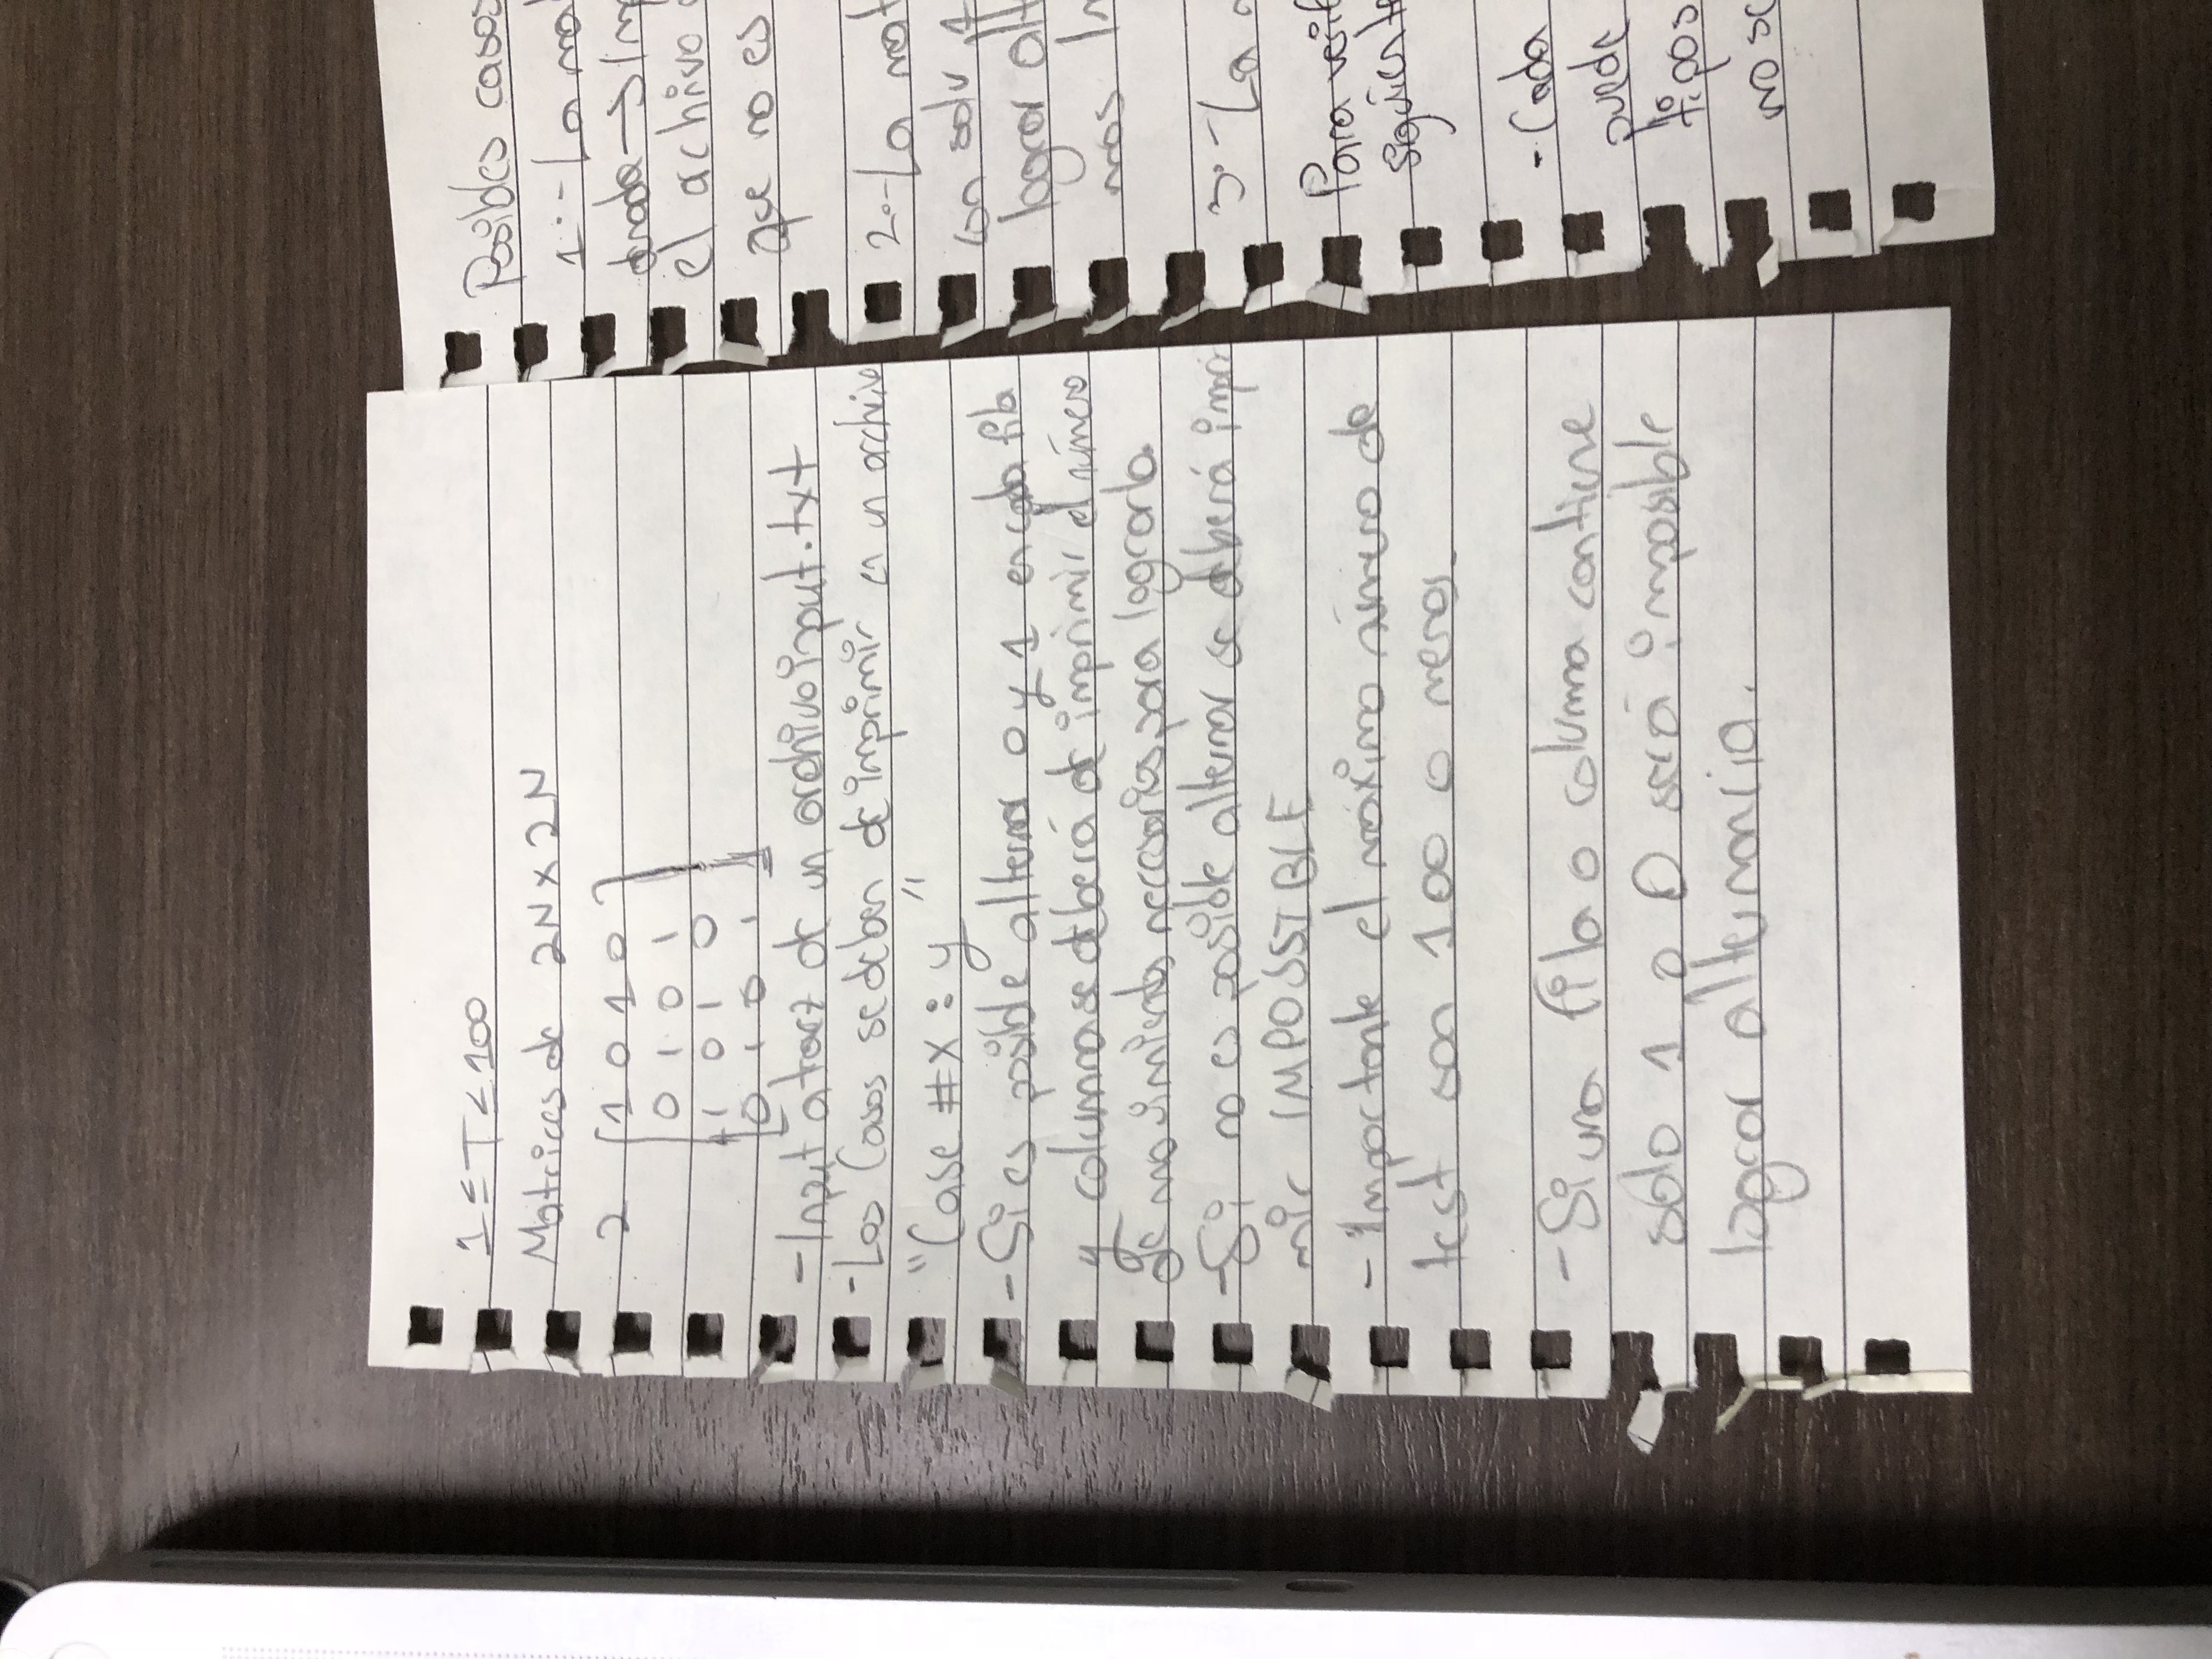 1 ≤ T ≤ 100
Matrices de 2N x 2N
2 [1 0 1 0]
0 1 0 1
1 0 1 0
0 1 0 1
- Input a de un archivo iput.txt
- Los Casos se deben de imprimir en un archivo
"Case #X : y"
- Si es posible alternar 0 y 1 en cada fila
y columna se deberá de imprimir el número
de movimientos necesarios para lograrlo.
- Si no es posible alternar se deberá impri
mir IMPOSSIBLE
- Importante el máximo número de
test son 100 o menos.
- Si una fila o columna contiene
solo 1 o 0 será imposible
lograr alternancia.
Posibles casos
1.- La mat
denada → Imp
el archivo
que no es
2.- La mat
con solo 1
lograr alt
mos Im
3.- La
Para verif
siguiente
- Cada
puede
tipos
no se